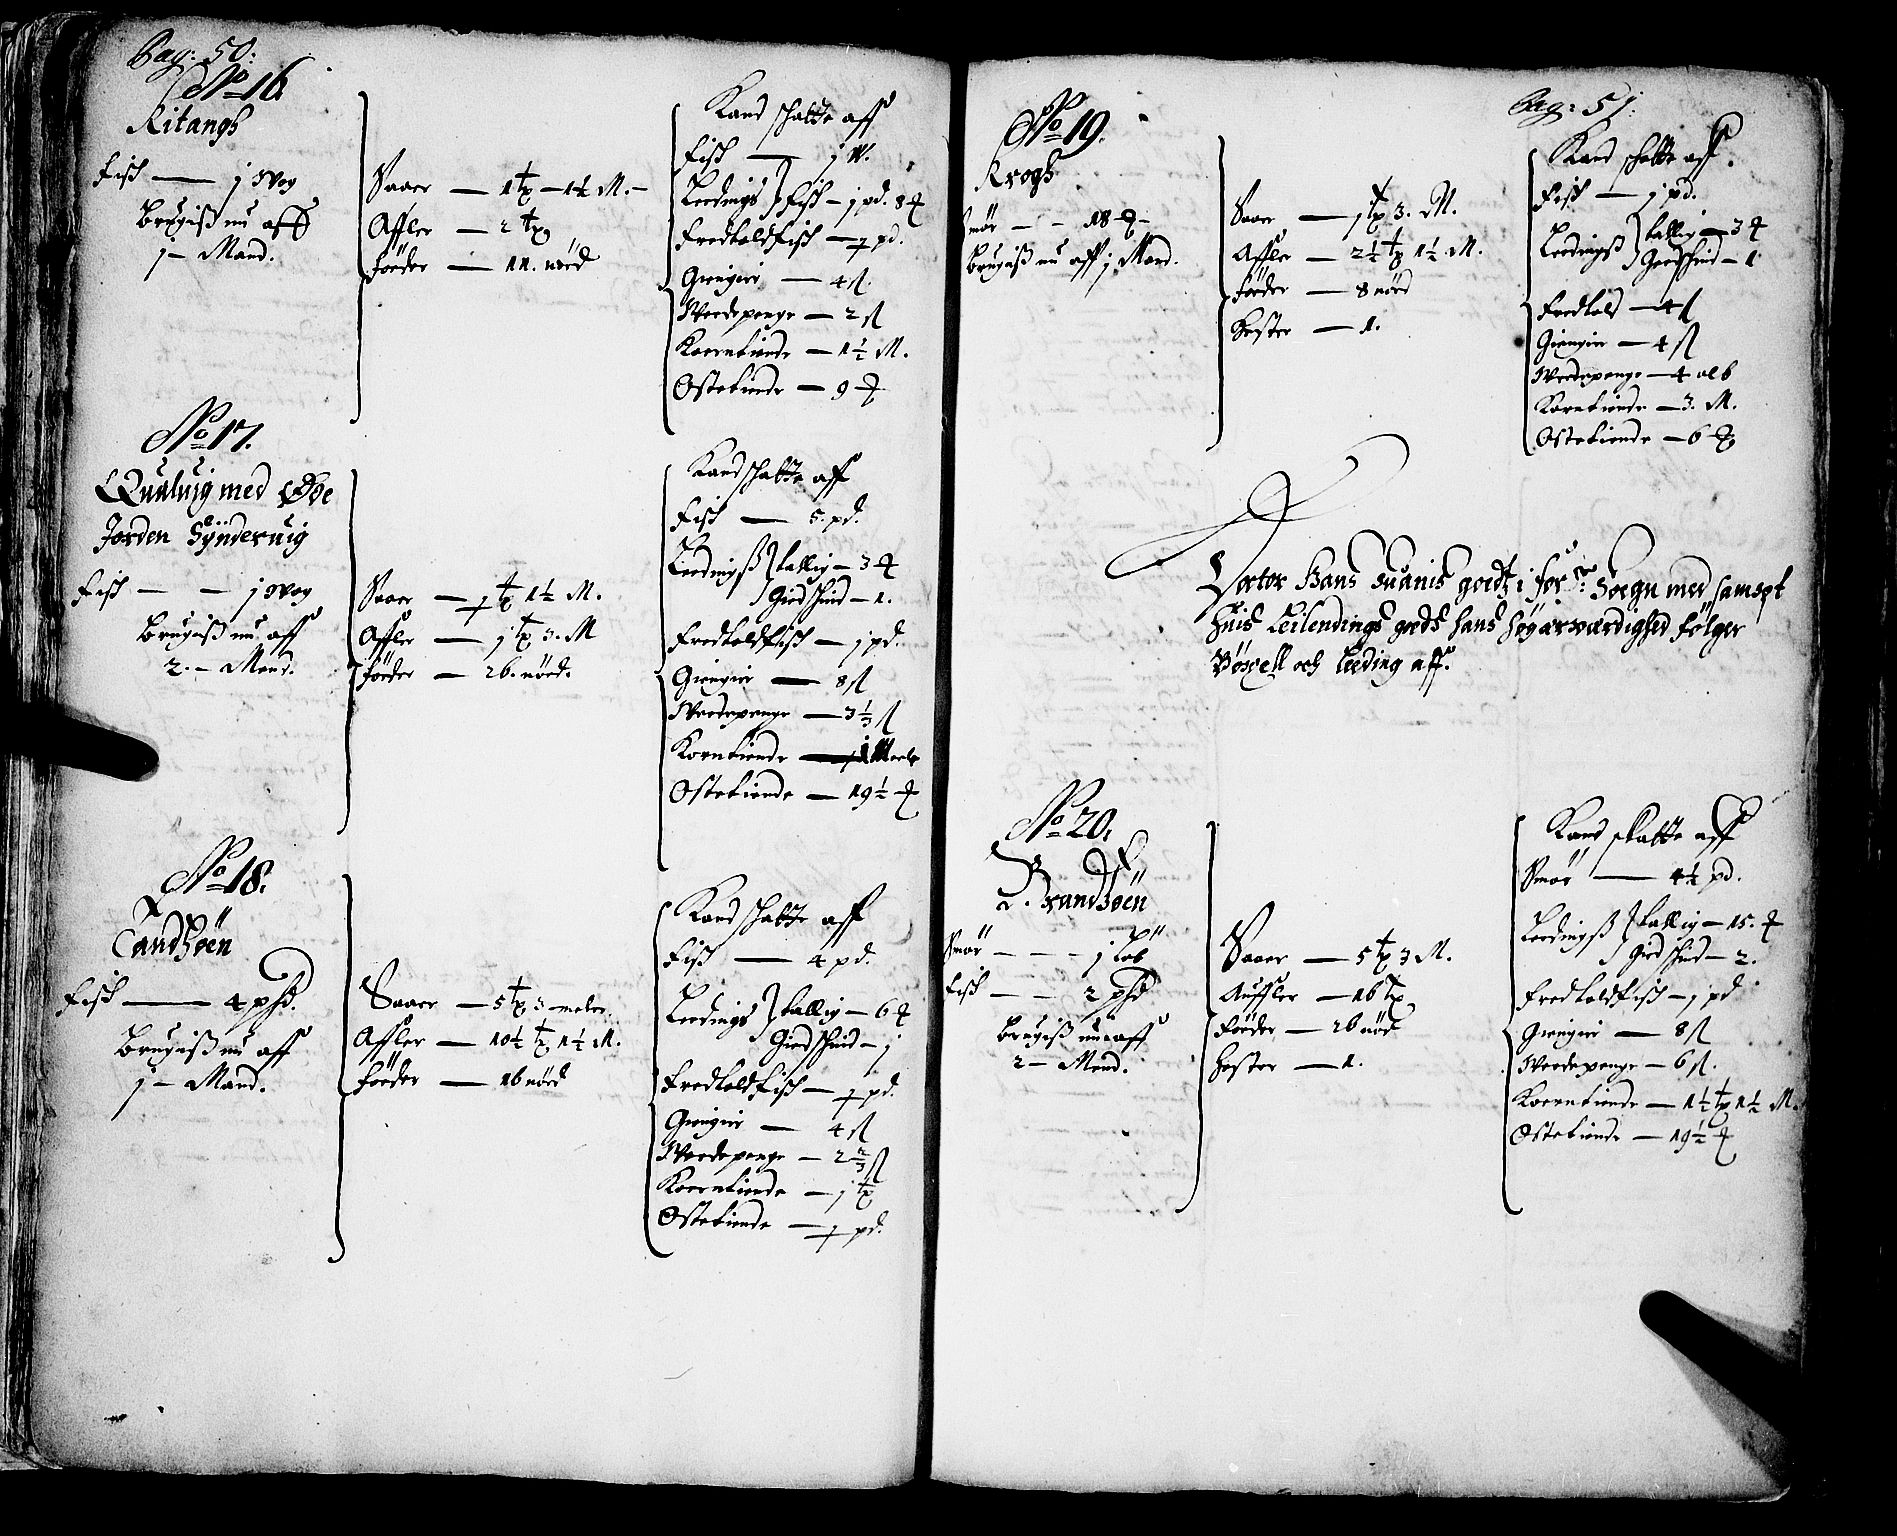 Pag: 50:
No 16.
Ritangs
Fisk — j wog
Brugis nu aff
j — Mand.
Saaer — 1 tp — 1½ M. —
Affler — 2 tp
Foeder — 11. nød
Kand schatte aff
Fisk — j W.
Leedings } Fisk — j pd. 8 ℔
Fredtoldfisk — ½ pd.
Giengier — 4 ß.
Wordepenge — 2 ß
Koerntiende — 1½ M.
Ostetiende — 9 ℔
No 17.
Qualuig med Øde
Jorden Synderuig
Fisk — — j wog
Brugis nu aff
2. — Mand.
Saaer — ½ tp 1½ M.
Affler — j tp 3. M
Foeder — 26. nød.
Kand schatte aff
Fisk — 5. pd.
Leedings } kallig — 3 ℔
Giedskind — 1.
Fredtoldfisk — j pd.
Giengier — 8 ß
Wordepenge — 3⅓ ß
Korntiende — Meele
Ostetiende — 19½ ℔
No 18.
Tandsøen
Fisk — 4 pd.
Brugis nu aff
j — Mand.
Saaer — 5 tp 3 meler.
Affler — 10½ tp 1½ M.
Foeder — 16 nød
Kand schatte aff
Fisk — 4 pd.
Leedings } kallig — 6 ℔
Giedskind — j
Fredtoldfisk — ½ pd.
Giengier — 4 ß
Wordepenge — 2⅔ ß
Koerntiende — j tp
Ostetiende — ½ pd.
Pag: 51.
No 19.
Krogs
Smør — — 18 ℔ —
Brugis nu aff j Mand.
Saaer — j tp 3. M.
Affler — 2½ tp 1½ M.
Foeder — 8 nød
Hester — 1.
Kand schatte aff.
Fisk — j pd.
Leedings } kallig — 3 ℔
Giedskind — 1
Fredtold — 4 ß
Giengier — 4 ß
Wordepenge — 4 alb
Korntiende — 3. M.
Ostetiende — 6 ℔
Doctor Hans Suanis godtz i for.ne Sogn med sampt
huis Leilendings gods hans høgærværdighed følger
Bøxell och Leeding aff.
No 20.
Brandsøen
Smør — — j Løb
Fisk — — 2 pd
Brugis nu aff
2 — Mand.
Saaer — 5 tp 3 M.
Auffler — 16 tp
Foeder — 26 nød
Hester — 1.
Kand skatte aff
Smør — 4½ pd.
Leedings } kallig — 15. ℔
Gied skind — 2.
Fredtoldfisk — j pd
Giengier — 8 ß
Wordepenge — 6 ß.
Koerntiende — 1½ tp 1½ M.
Ostetiende — 19½ ℔